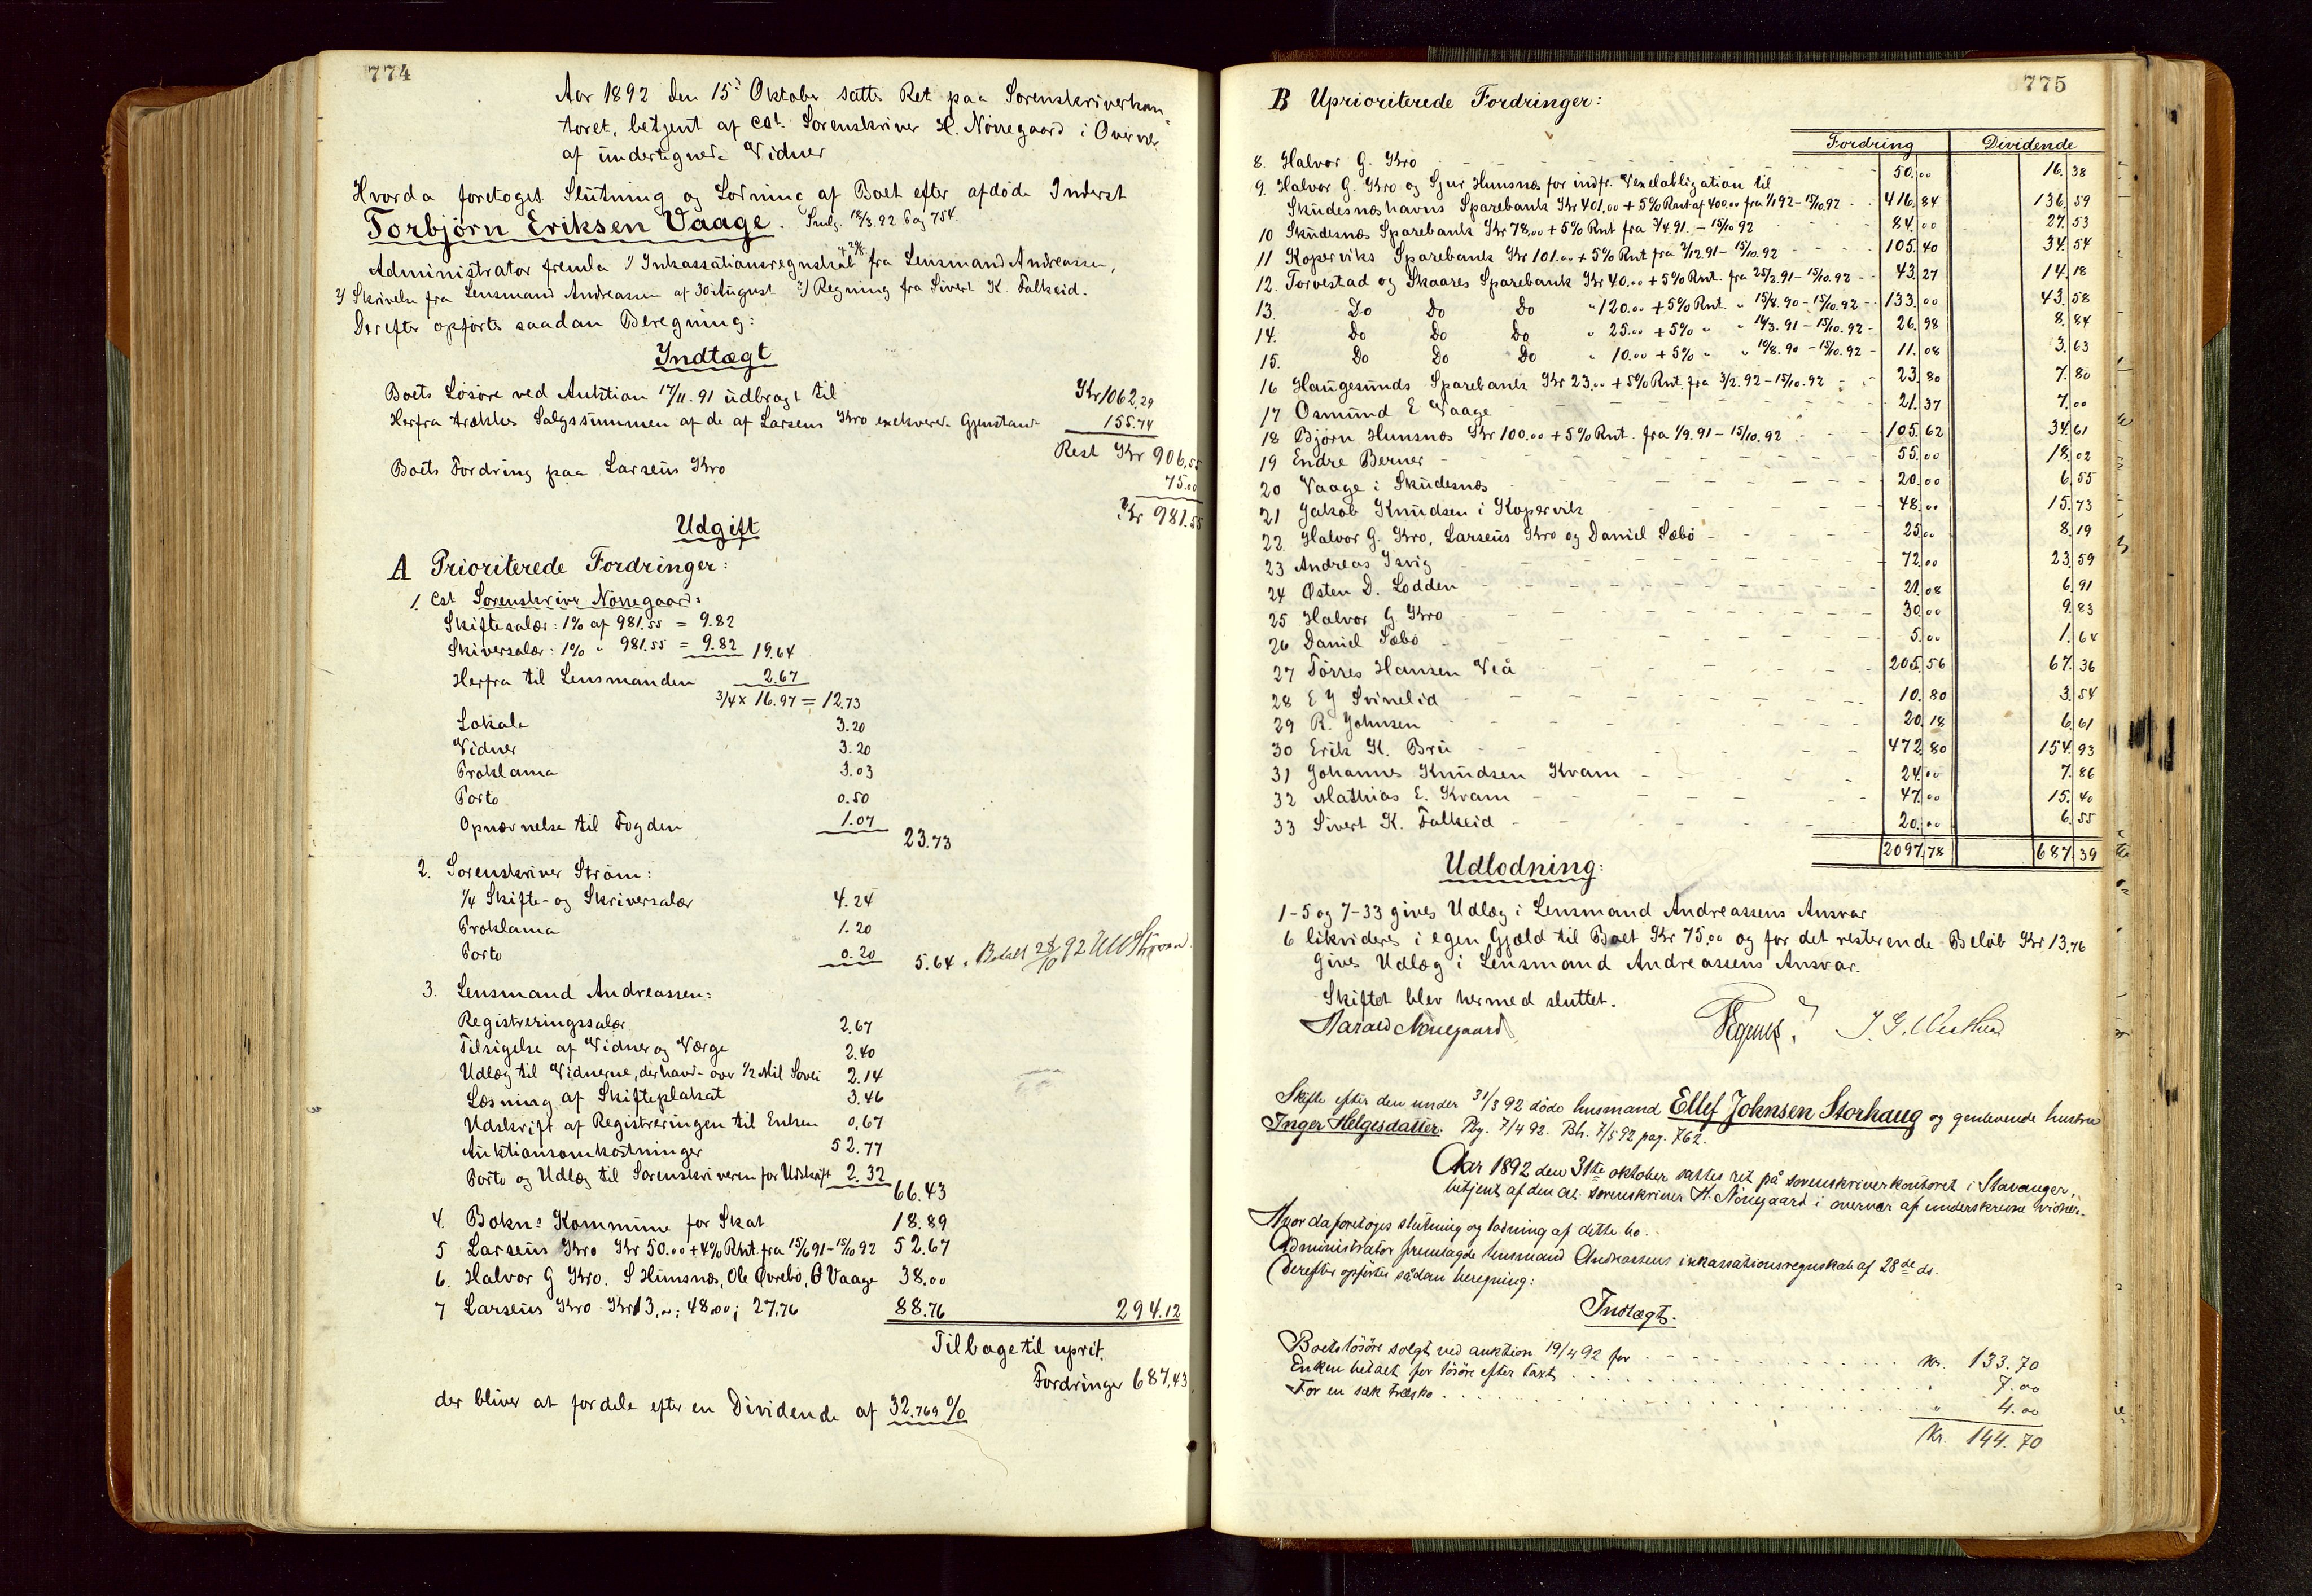 774
Aar 1892 den 15de Oktober sattes Ret paa Sorenskriverkon-
toret, betjent af cst. Sorenskriver H. Nörregaard i Overvær
af undertegnede Vidner
Hvorda foretoges Slutning og Lodning af Boet efter afdöde Inderst
Torbjörn Eriksen Vaage. 18/3.92 Pag 754.
Administrator fremla 1/ Inkassationsregnskab fra Lensmand Andreassen,
2/ Skrivelse fra Lensmand Andreassen af 30 August 3/ Regning fra Sivert K. Falkeid.
Derefter opförtes saadan Beregning:
Indtægt
Boets Lösöre ved Auktion 17/11.91 udbragt til Kr 1062,29
Herfra trækkes Salgssummen af de af Larseus Kro exekverede Gjenstande 155.74
Rest Kr 906,55
Boets Fordring paa Larseus Kro 75.00
Kr 981.55
Udgift
A Prioriterede Fordringer:
1. Cst Sorenskriver Nörregaard:
Skiftesalær: 1% af 981.55 = 9.82
Skriversalær: 1% " 981.55 = 9.82 19.64
Herfra til Lensmanden 2.67
3/4 x 16.97 = 12.73
Lokale 3.20
Vidner 3.20
Proklama 3.03
Porto 0.50
Opnævnelse til Fogden 1.07 23.73
2. Sorenskriver Ström:
1/4 Skifte- og Skriversalær 4.24
Proklama 1.20
Porto 0.20 5.64. Betalt 28/10 92 Ström
3. Lensmand Andreassen:
Registreringssalær 2.67
Tilsigelse af Vidner og Værge 2.40
Udlæg til Vidnerne, der havde over 1/2 Mil Sovei 2.14
Læsning af Skifteplakat 3.46
Udskrift af Registreringen til Enken 0.67
Auktionsomkostninger 52.77
Porto og Udlæg til Sorenskriveren for Udskrift 2.32 66.43
4. Bokn: Kommune for Skat 18.89
5 Larseus Kro Kr 50.00 + 4% Rnt. fra 15/6 91 - 15/10 92 52.67
6. Halvor G Kro. S Hunsnæs, Ole Övrebö, O Vaage 38.00
7 Larseus Kro Kr 13,00; 48.00; 27.76 88.76 294.12
Tilbage til uprit.
Fordringer 687,43
der bliver at fordele efter en Dividende af 32.769 %
775
B Uprioriterede Fordringer:
Fordring Dividende
8. Halvor G. Kro 50.00 16.38
9. Halvor G. Kro og Sjur Hunsnæs for indfr. Vexelobligation til
Skudesnæshavns Sparebank Kr 401.00 + 5% Rnt af 400.00 fra 1/1 92 - 15/10 92 416.84 136.59
10 Skudesnæs Sparebank Kr 78.00 + 5% Rnt fra 3/4.91 - 15/10 92 84.00 27.53
11 Koperviks Sparebank Kr 101.00 + 5% Rnt fra 2/12.91 - 15/10.92 105.40 34.54
12. Torvestad og Skaares Sparebank Kr 40.00 + 5% Rnt. fra 25/2.91 - 15/10.92 43.27 14.18
13. Do Do Do " 120.00 + 5% Rnt. " 15/8.90 - 15/10.92 133.00 43.58
14. Do Do Do " 25.00 + 5% " " 14/3.91 - 15/10.92 26.98 8.84
15. Do Do Do " 10.00 + 5% " " 19/8.90 - 15/10.92 11.08 3.63
16 Haugesunds Sparebank Kr 23.00 + 5% Rnt. fra 3/2.92 - 15/10.92 23.80 7.80
17 Osmund E Vaage 21.37 7.00
18 Björn Hunsnæs Kr 100.00 + 5% Rnt. fra 1/9.91 - 15/10.92 105.62 34.61
19 Endre Berner 55.00 18.02
20 Vaage i Skudesnæs 20.00 6.55
21 Jakob Knudsen i Kopervik 48.00 15.73
22. Halvor G. Kro, Larseus Kro og Daniel Sæbö 25.00 8.19
23 Andreas Isvig 72.00 23.59
24 Østen D. Lodden 21.08 6.91
25 Halvor G. Kro 30.00 9.83
26 Daniel Sæbö 5.00 1.64
27 Törres Hansen Veå 205.56 67.36
28 E J Svinelid 10.80 3.54
29 R. Johnsen 20.18 6.61
30 Erik K. Bru 472.80 154.93
31 Johannes Knudsen Kvam 24.00 7.86
32 Mathias E. Kvam 47.00 15.40
33 Sivert K. Falkeid 20.00 6.55
2097.78 687.39
Udlodning:
1-5 og 7-33 gives Udlæg i Lensmand Andreassens Ansvar
6 likvideres i egen Gjæld til Boet Kr 75.00 og for det resterende Belöb Kr 13.76
gives Udlæg i Lensmand Andreassens Ansvar.
Skiftet blev hermed sluttet.
Harald Nörregaard
Skifte efter den under 31/3 92 döde husmand Ellef Johnsen Storhaug og genlevende hustru
Inger Helgesdatter. Rbg. 7/4 92. Bh. 7/5 92 pag. 762.
Aar 1892 den 31te oktober sattes ret på sorenskriverkontoret i Stavanger,
betjent af den cst. sorenskriver H. Nörregaard i overvær af underskrevne vidner.
Hvorda foretoges slutning og lodning af dette bo.
Administrator fremlagde lensmand Andreassens inkassationsregnskab af 28de ds.
Derefter opförtes sådan beregning:
Indtægt.
Boets lösöre solgt ved auktion 19/4 92 for kr. 133.70
Enken betalt for lösöre efter taxt " 7.00
For en sæk træsko " 4.00
Kr. 144.70